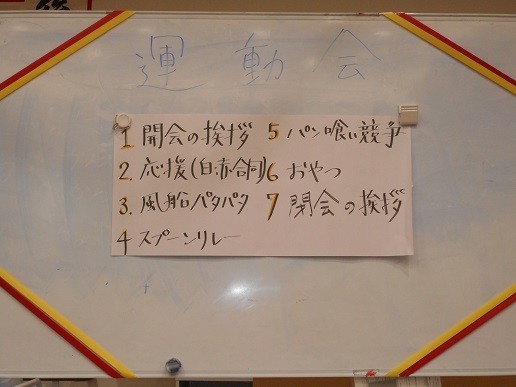 運動会
1 開会の挨拶
2. 応援(白.赤合同)
3. 風船パタパタ
4 スプーンリレー
5 パン喰い競争
6 おやつ
7 閉会の挨拶